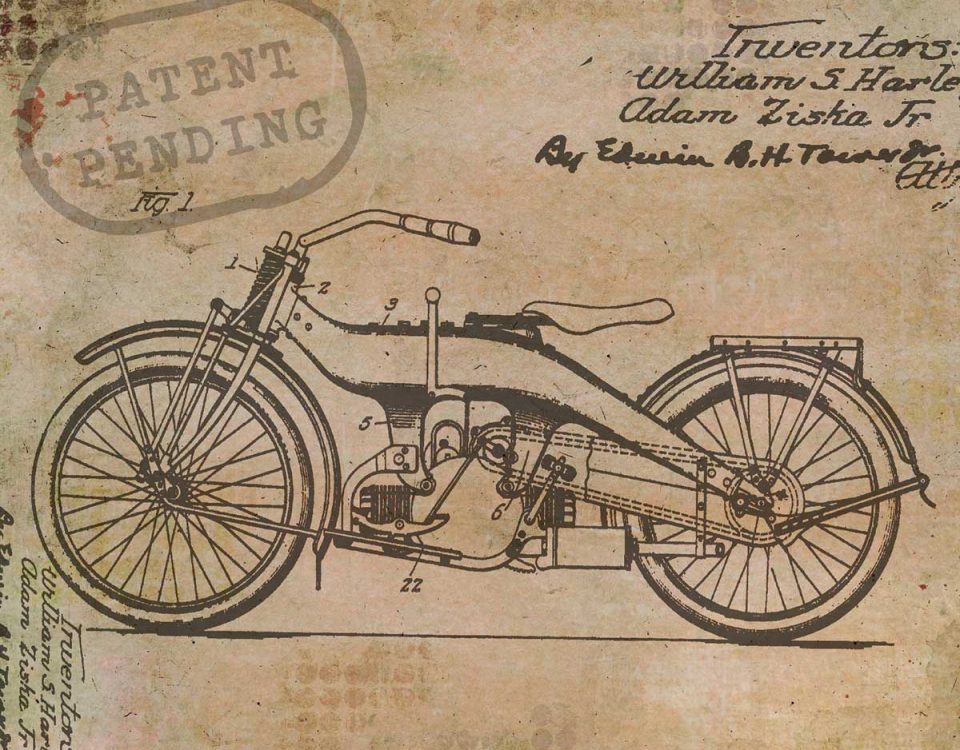 PATENT
PENDING
Inventors:
William S. Harle
Adam Ziska Jr
By Edwin B. H. Tower Jr.
Fig. 1.
1
2
3
5
6
22
Inventors
William S. Har
Adam Ziska Jr